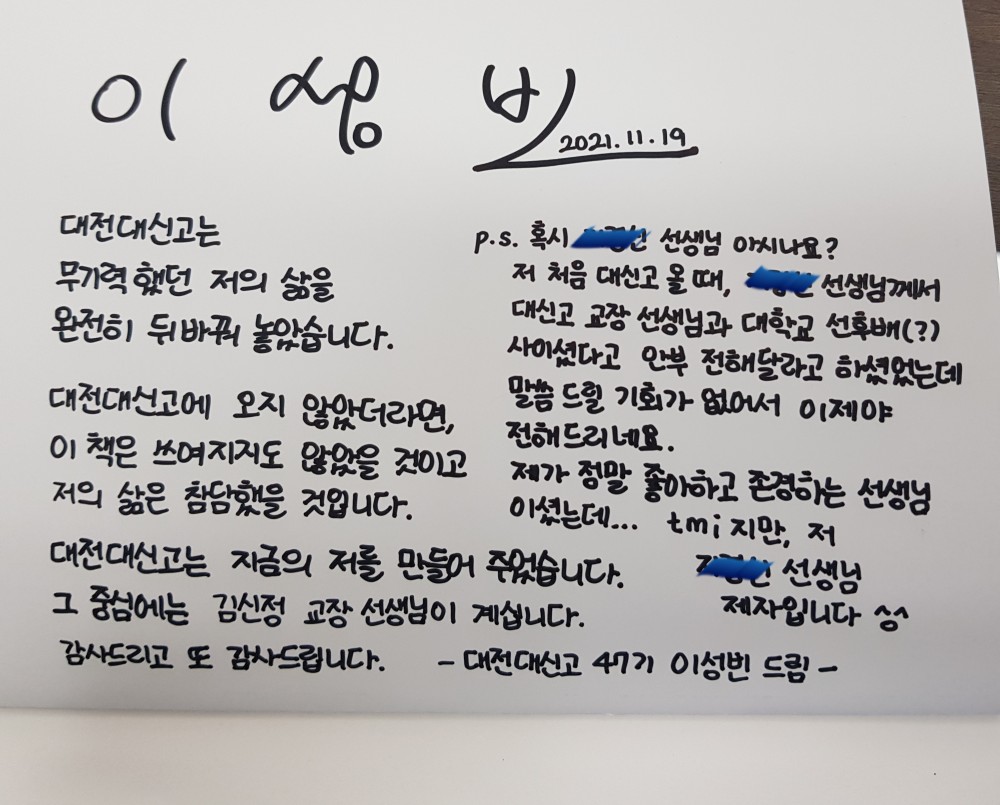 이성빈
2021.11.19
대전대신고는
무기력했던 저의 삶을
완전히 뒤바꿔 놓았습니다.
대전대신고에 오지 않았더라면,
이 책은 쓰여지지도 않았을 것이고
저의 삶은 참담했을 것입니다.
대전대신고는 지금의 저를 만들어 주었습니다.
그 중심에는 김신정 교장 선생님이 계십니다.
감사드리고 또 감사드립니다.
- 대전대신고 47기 이성빈 드림 -
p.s. 혹시 선생님 아시나요?
저 처음 대신고 올 때, 선생님께서
대신고 교장 선생님과 대학교 선후배(?)
사이셨다고 안부 전해달라고 하셨었는데
말씀 드릴 기회가 없어서 이제야
전해드리네요.
제가 정말 좋아하고 존경하는 선생님
이셨는데... tmi지만, 저
선생님
제자입니다 ^^